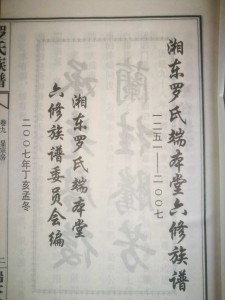 湘东罗氏端本堂六修族谱
一二五一——二〇〇七
湘东罗氏端本堂
六修族谱委员会编
二〇〇七年丁亥孟冬
罗氏族谱
卷九